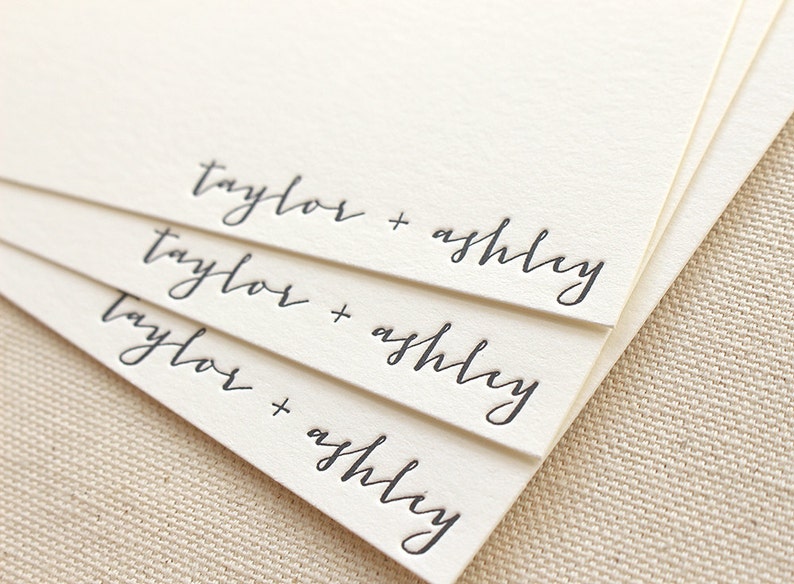 taylor + ashley
taylor + ashley
taylor + ashley